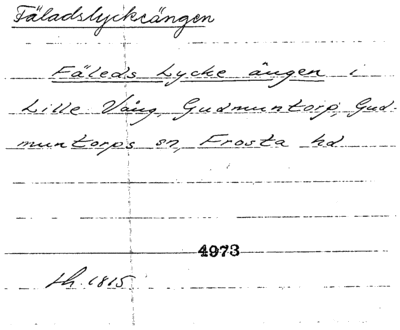 Fäladslyckeängen
Fäleds Lycke ängen i
Lille Vång, Gudmuntorp, Gud-
muntorps sn, Frosta hd
4973
Lh. 1815